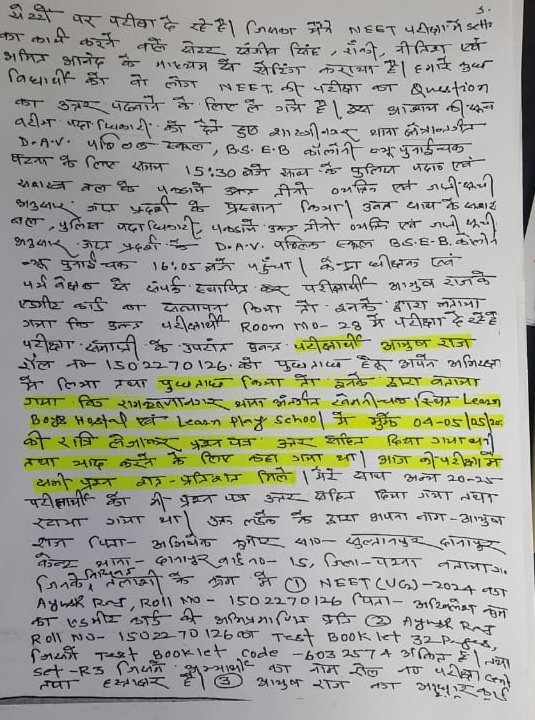 सेन्टरों पर परीक्षा दे रहे है। जिसका मैंने NEET परीक्षा में सेटिंग
का कार्य करने वाले रॉकी, नीतिश एवं
अमित आनंद के माध्यम से सेटिंग कराया है। हमारे कुछ
विद्यार्थी को वे लोग NEET की परीक्षा का Question
का उत्तर पढवाने के लिए ले गये है। इस आशय की सूचना
वरीय पदाधिकारी को देते हुए शास्त्रीनगर थाना क्षेत्रान्तर्गत
D.A.V. पब्लिक स्कूल, B.S.E.B कॉलोनी न्यू पुनाईचक
पटना के लिए समय 15:30 बजे साथ के पुलिस पदा० एवं
सशस्त्र बल के पकडाये उक्त तीनो व्यक्ति एवं
अनुसार जप्त प्रदर्श के प्रस्थान किया। उक्त साथ के सशस्त्र
बल, पुलिस पदाधिकारी, पकडाये उक्त तीनो व्यक्ति एवं
अनुसार जप्त प्रदर्श के D.A.V. पब्लिक स्कूल B.S.E.B. कॉलोनी
न्यू पुनाईचक 16:05 बजे पहुँचा। केन्द्राधीक्षक एवं
पर्यवेक्षक से संपर्क स्थापित कर परीक्षार्थी आयुष राज के
एडमीट कार्ड का सत्यापन किया तो इनके द्वारा बताया
गया कि उक्त परीक्षार्थी Room No- 28 में परीक्षा दे रहे है
परीक्षा समाप्ती के उपरांत उक्त परीक्षार्थी आयुष राज
रौल न० 1502270126 को पुछताछ हेतु अपने अभिरक्षा
में लिया तथा पुछताछ किया तो इनके द्वारा बताया
गया कि रामकृष्णानगर थाना अंर्तगत खेमनीचक स्थित Learn
Boys Hostel एवं Learn Play School में मुझे 04-05/05/20
की रात्रि लेजाकर प्रश्न पत्र उत्तर सहित दिया गया था
तथा याद करने के लिए कहा गया था। आज की परीक्षा में
सभी प्रश्न शत-प्रतिशत मिले। मेरे साथ अन्य 20-25
परीक्षार्थी को भी प्रश्न पत्र उत्तर सहित दिया गया तथा
रटाया गया था। उक्त लड़के के द्वारा अपना नाम- आयुष
राज पिता- अखिलेश कुमार सा०- सुल्तानपुर दानापुर
थाना- दानापुर वार्ड नं०- 15, जिला- पटना बताया गया।
जिनके विधिवत तलाशी के क्रम में ① NEET (UG)-2024 का
Ayush Raj, Roll No- 1502270126 पिता- अखिलेश कुमार
का एडमीट कार्ड की अभिप्रमाणित प्रति ② Ayush Raj
Roll No- 1502270126 का Test Booklet 32 Pages,
जिसमें Test Booklet code -6032574 अंकित है। तथा
Set-R3 जिसमें अभ्यार्थी का नाम रौल न० परीक्षा
तथा हस्ताक्षर है। ③ आयुष राज का आधार कार्ड